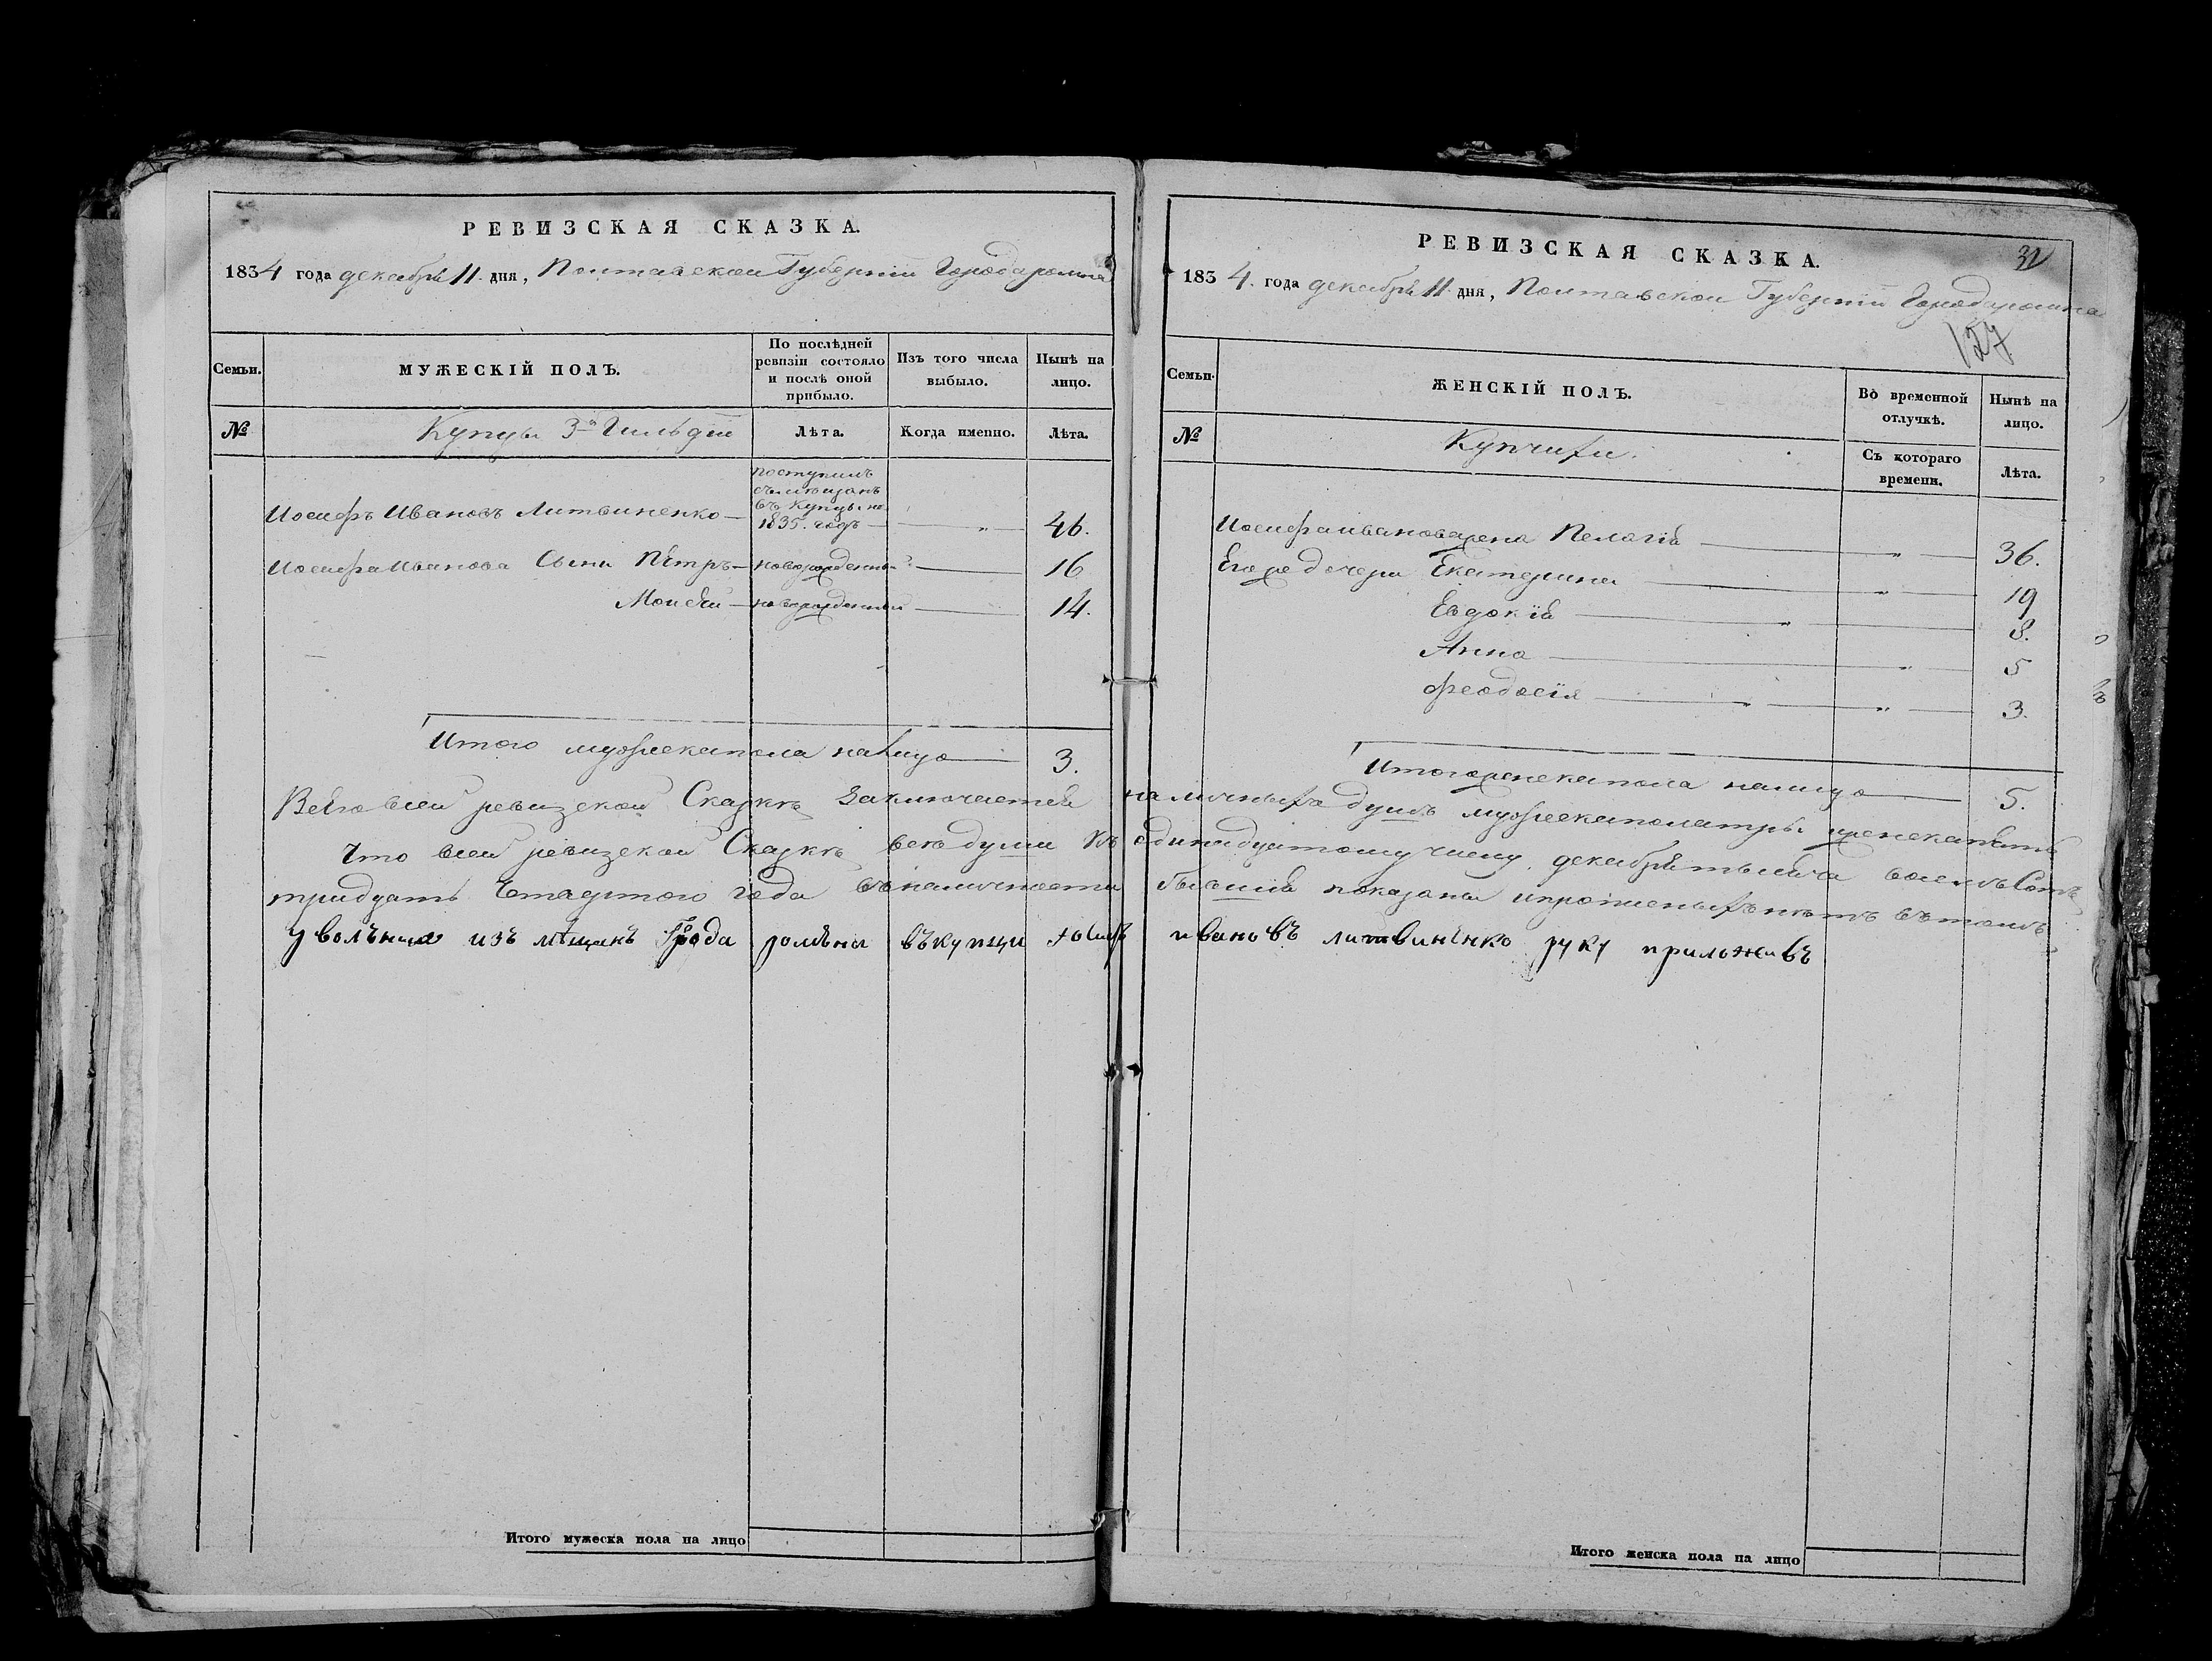 РЕВИЗСКАЯ СКАЗКА.
1834 года декабря 11 дня, Полтавской Губернии Города Ромна
Семьи.
МУЖЕСКІЙ ПОЛЪ.
По послѣдней ревизіи состояло и послѣ оной прибыло.
Изъ того числа выбыло.
Нынѣ на лицо.
№
Купцы 3й Гильдіи
Лѣта.
Когда именно.
Лѣта.
поступилъ
съ мещанъ
въ Купцы на
Иосифъ Ивановъ Литвиненко — 1835. годъ — " — 46.
Иосифа Иванова Сыни Пётръ — новорожденный — 16
Моисей — новорожденный — 14.
Итого мужеска пола на лицо — 3.
РЕВИЗСКАЯ СКАЗКА.
31
1834. года декабря 11 дня, Полтавской Губернии Города Ромна
127
Семьи.
ЖЕНСКІЙ ПОЛЪ.
Во временной отлучкѣ.
Нынѣ на лицо.
№
Купчихи.
Съ котораго времени.
Лѣта.
Иосифа Иванова жена Пелагія — " — 36.
Его же дочери Екатерина — " — 19
Евдокія — " — 8.
Анна — " — 5
Феодосія — " — " — 3.
Итого женска пола на лицо — 5.
Всего всей ревизской Сказке заключается наличныхъ душъ мужеска пола три женска пять
Что всей ревизской Сказке все души къ единадцатому числу декабря тысяча восемь Сотъ
тридцать Четвертого года въ наличности бывшія показаны и прописныхъ нетъ въ томъ
уволъная изъ мѣщанъ Града ромъны въ купцы юсифъ ивановъ литвиненко руку приложивъ
Итого мужеска пола на лицо
Итого женска пола на лицо